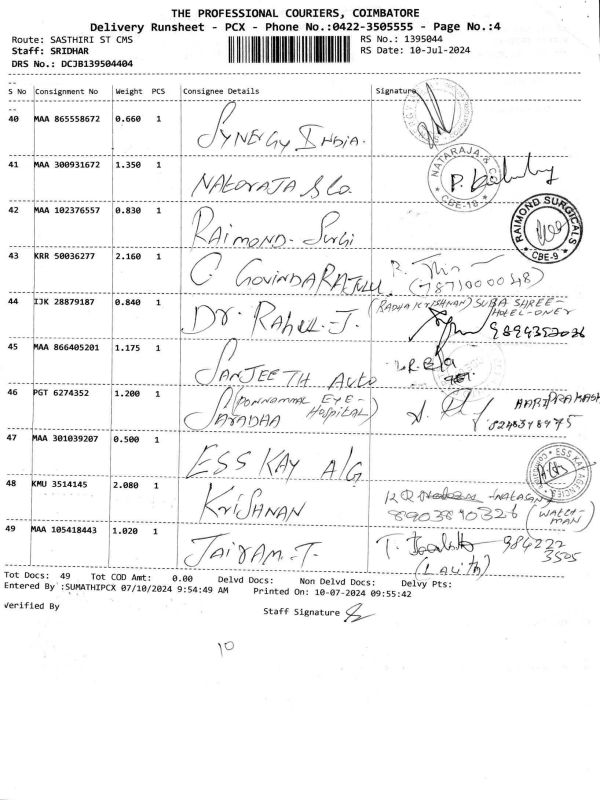 THE PROFESSIONAL COURIERS, COIMBATORE
Delivery Runsheet - PCX - Phone No.:0422-3505555 - Page No.:4
Route: SASTHIRI ST CMS RS No.: 1395044
Staff: SRIDHAR RS Date: 10-Jul-2024
DRS No.: DCJB139504404
S No Consignment No Weight PCS Consignee Details Signature
40 MAA 865558672 0.660 1 SYNERGY INDIA.
41 MAA 300931672 1.350 1 NATORAJA & Co. NATARAJA & CO CBE-18
42 MAA 102376557 0.830 1 RAIMOND- Surgi RAIMOND SURGICALS CBE-9
43 KRR 50036277 2.160 1 C. GOVINDARAJULU. (7871000048)
44 IJK 28879187 0.840 1 DR. RAHUL.J. (RADHA KRISHNAN) SUBA SHREE-
HOTEL-ONER
9894352026
45 MAA 866405201 1.175 1 SANJEETH Auto
46 PGT 6274352 1.200 1 (PONNAMMAL EYE- Hospital) HARI PRAKASH
SARADHA 8248348475
47 MAA 301039207 0.500 1 ESS KAY A/G ESS KAY AGENCIES
48 KMU 3514145 2.080 1 KRISHNAN
8903890326 (WATCH-
MAN)
49 MAA 105418443 1.020 1 JAIRAM.T. T. 984222
3505
(Lalith)
Tot Docs: 49 Tot COD Amt: 0.00 Delvd Docs: Non Delvd Docs: Delvy Pts:
Entered By :SUMATHIPCX 07/10/2024 9:54:49 AM Printed On: 10-07-2024 09:55:42
Verified By
Staff Signature
10